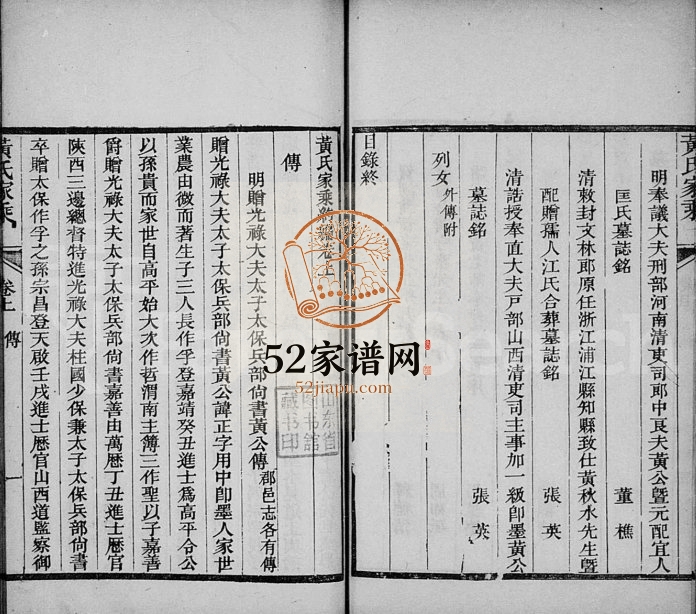 黃氏家乘
明奉議大夫刑部河南清吏司郎中良夫黃公曁元配宜人
匡氏墓誌銘 董樵
清敕封文林郎原任浙江浦江縣知縣致仕黃秋水先生曁
配贈孺人江氏合葬墓誌銘 張英
清誥授奉直大夫戸部山西清吏司主事加一級卽墨黃公
墓誌銘 張英
列女 外傳附
目錄終
黃氏家乘 卷上
傳
明贈光祿大夫太子太保兵部尙書黃公傳 郡邑志各有傳
贈光祿大夫太子太保兵部尙書黃公諱正字用中卽墨人家世
業農由微而著生子三人長作孚登嘉靖癸丑進士爲高平令公
以孫貴而家世自高平始大次作哲渭南主簿三作聖以子嘉善
爵贈光祿大夫太子太保兵部尙書嘉善由萬歷丁丑進士歷官
陝西三邊總督特進光祿大夫柱國少保兼太子太保兵部尙書
卒贈太保作孚之孫宗昌登天啟壬戌進士歷官山西道監察御
黃氏家乘 卷上 傳 一
52家谱网
52jiapu.com